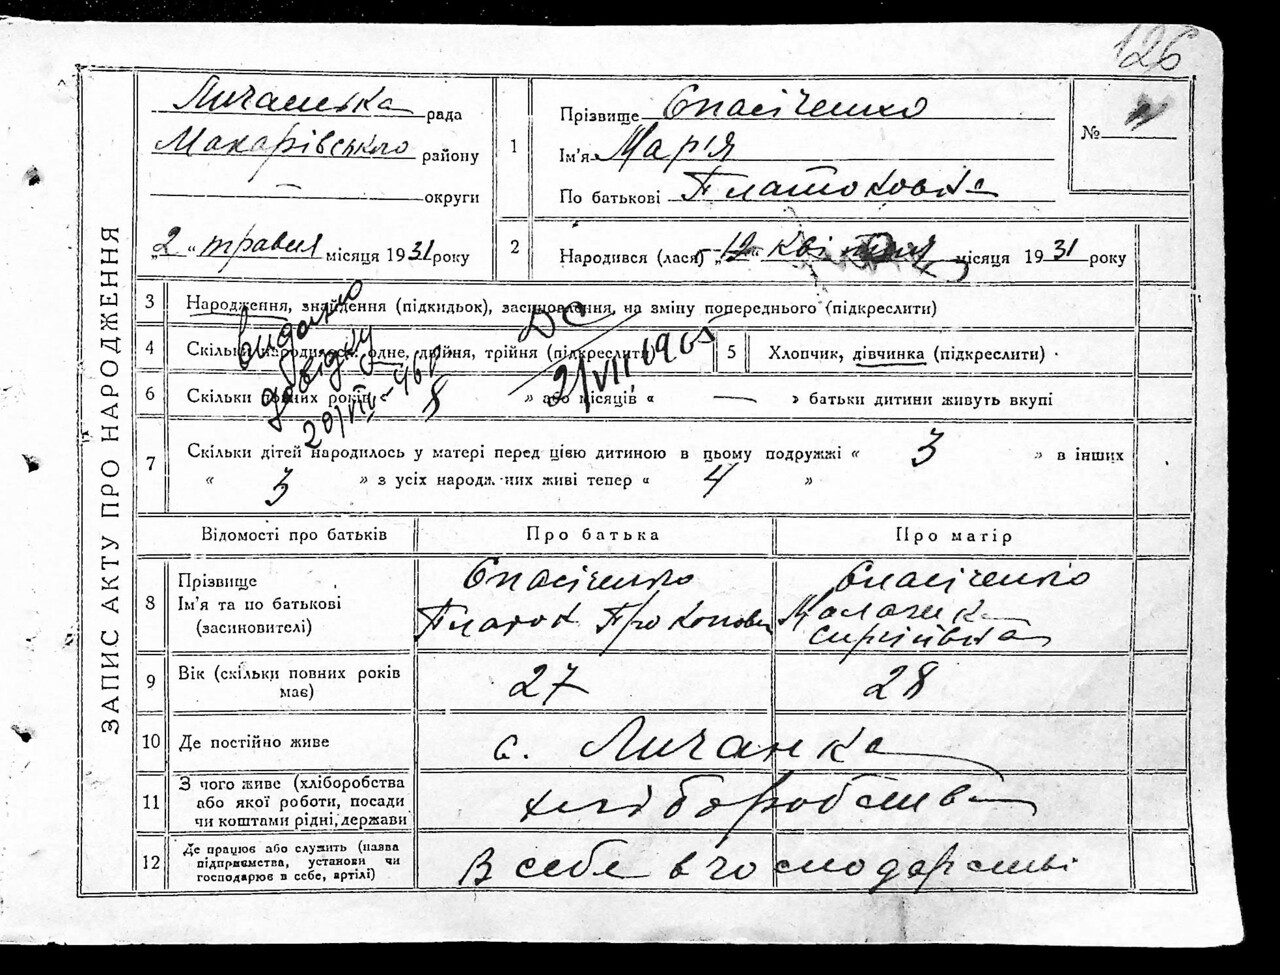 126
ЗАПИС АКТУ ПРО НАРОДЖЕННЯ
Личанська рада
Макарівського району
— округи
„2“ травня місяця 1931 року
1
Прізвище Спасіченко
Ім'я Марія
По батькові Платоковна
№
2
Народився (лася) „12“ квітня місяця 1931 року
3 Народження, знайдення (підкидьок), засиновлення, на зміну попереднього (підкреслити)
4 Скільки народилося: одне, двійня, трійня (підкреслити)
5 Хлопчик, дівчинка (підкреслити)
6 Скільки повних років 8 » або місяців « — » батьки дитини живуть вкупі
видано
довідку
20/VII-46р
ДС
2/VII 1965
7 Скільки дітей народилось у матері перед цією дитиною в цьому подружжі « 3 » в інших
« 3 » з усіх народжених живі тепер « 4 »
Відомості про батьків Про батька Про матір
8 Прізвище Ім'я та по батькові (засиновителі)
Спасіченко
Платок Прокопович
Спасіченко
Маланка
Сергіївна
9 Вік (скільки повних років має) 27 28
10 Де постійно живе с. Личанка
11 З чого живе (хліборобства або якої роботи, посади чи коштами рідні, держави хліборобства
12 Де працює або служить (назва підприємства, установи чи господарює в себе, артілі) В себе в господарстві